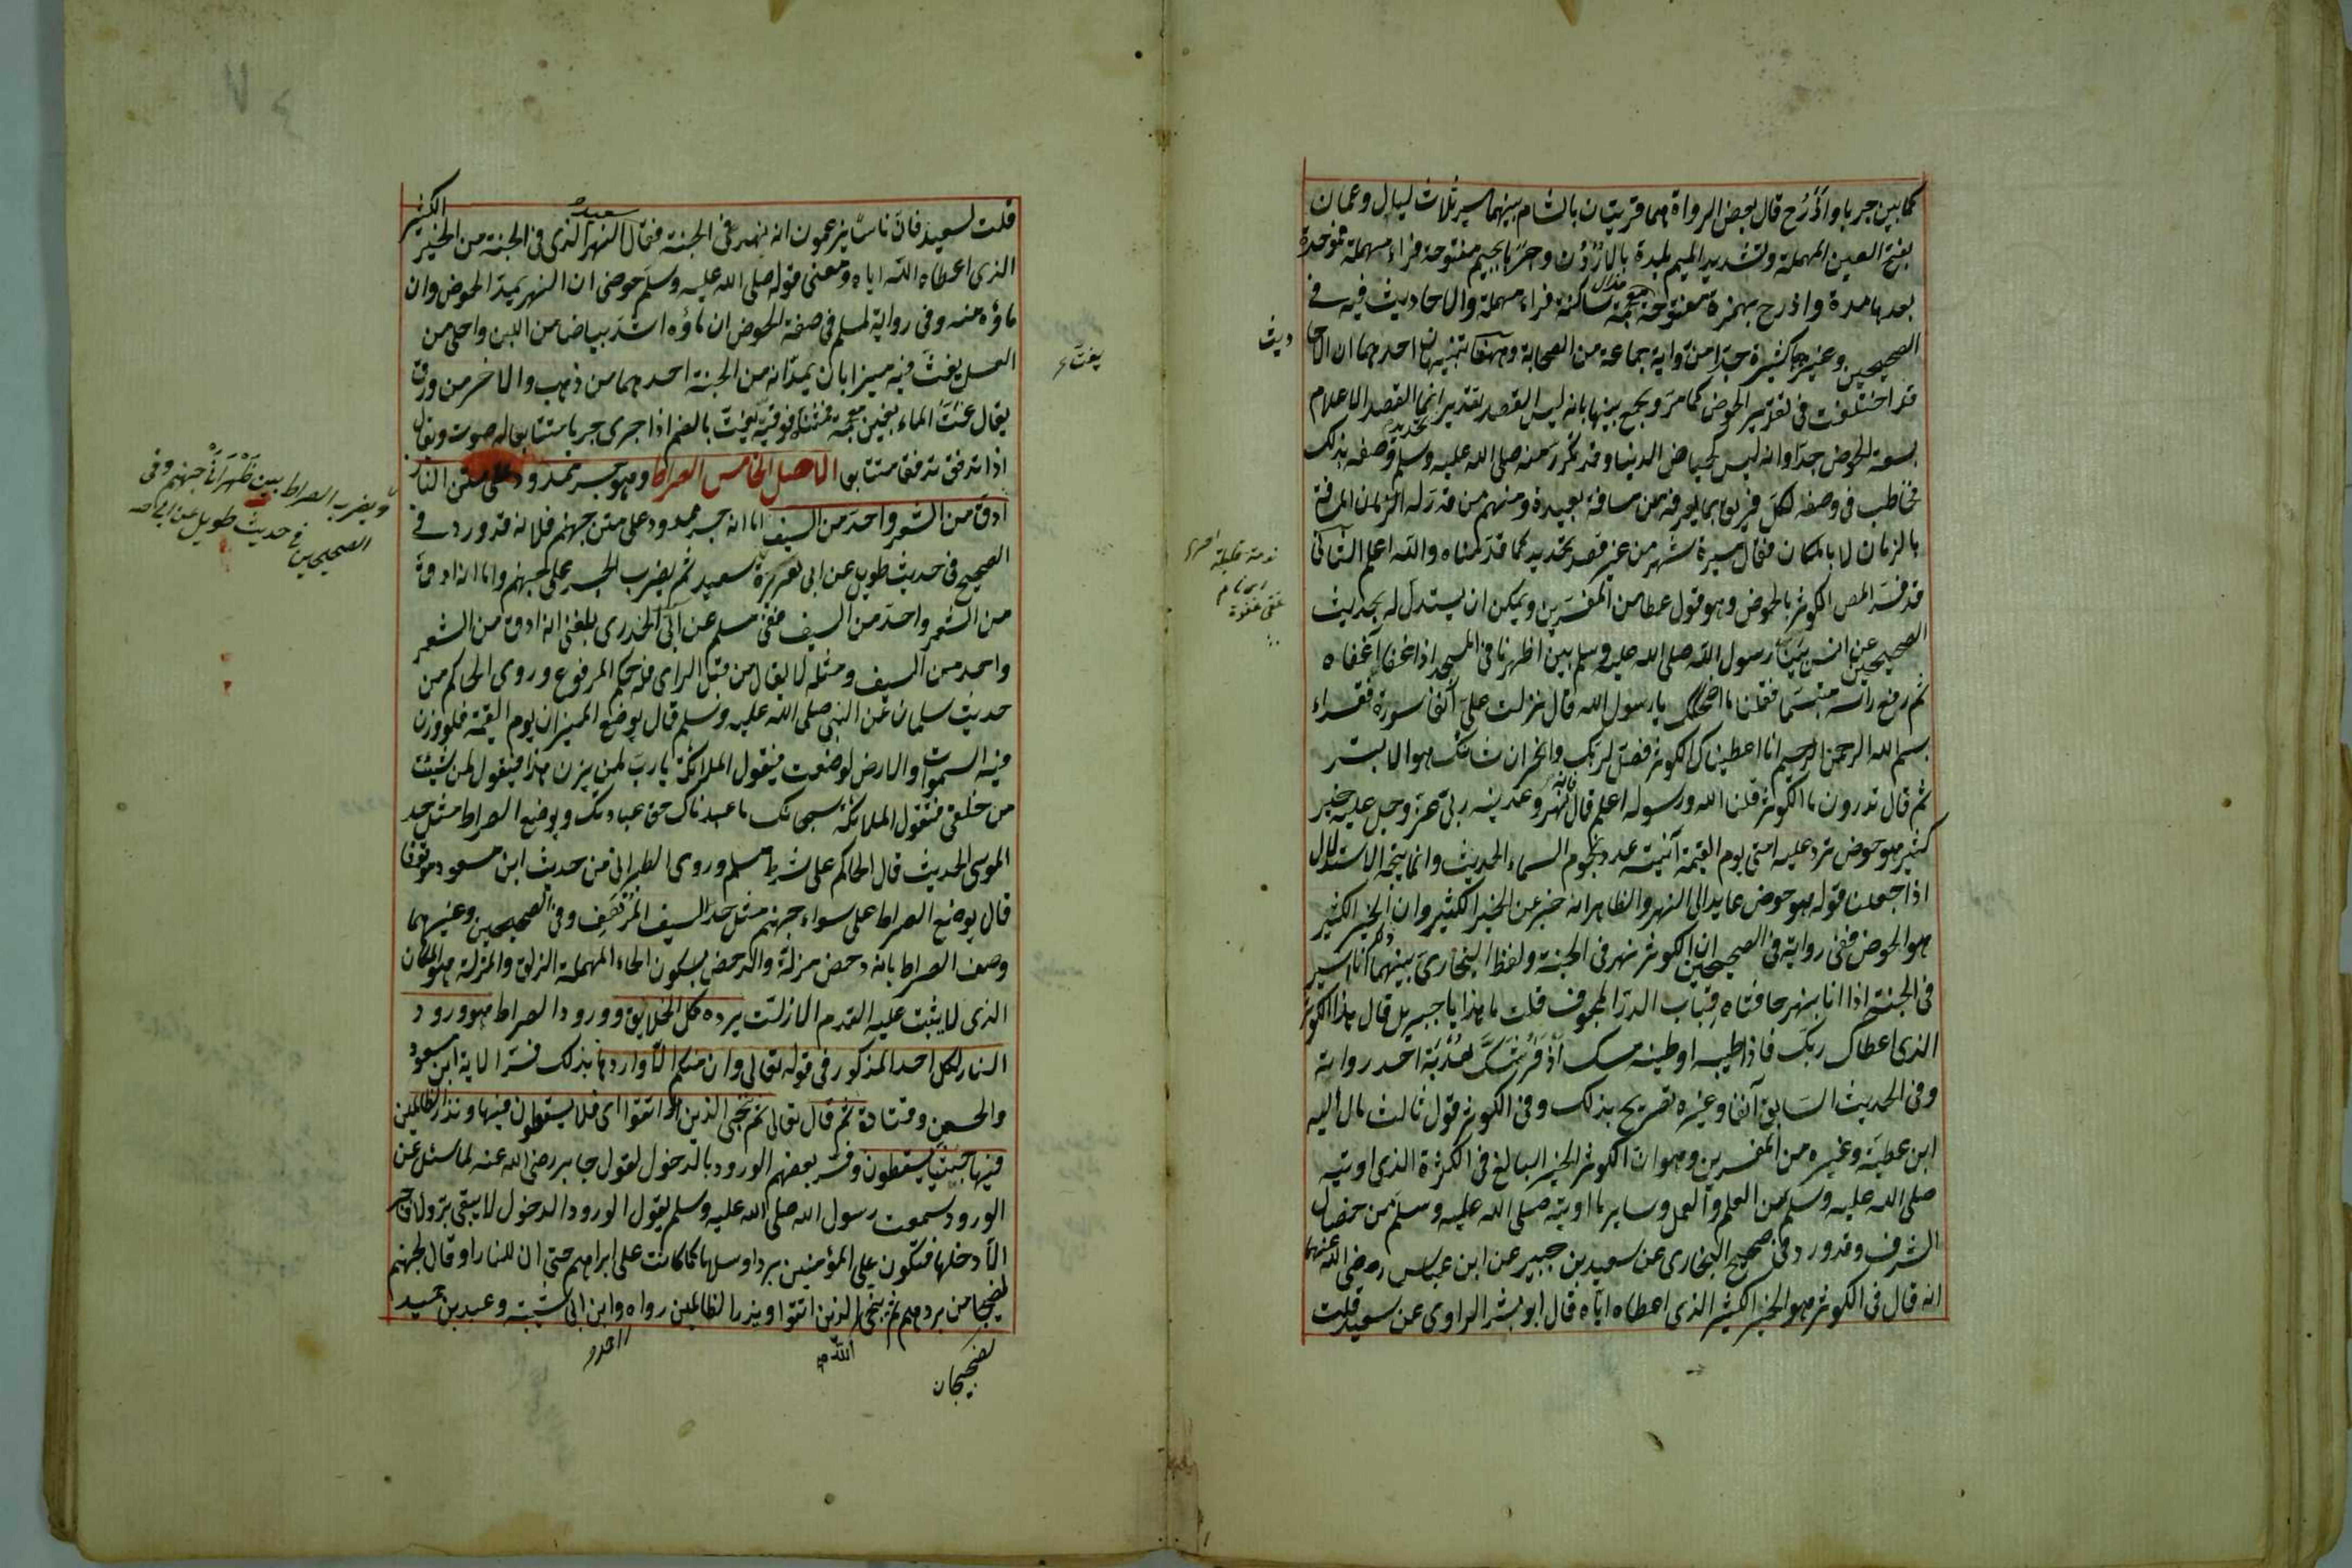 كما بين جربا واذرح قال بعض الرواة هما قريتان بالشام بينهما مسيرة ثلاث ليال وعمان
بفتح العين المهملة وتشديد الميم بلدة بالاردن وجربا بجيم مفتوحة فراء مهملة فموحدة
بعدها مدة واذرح بهمزة مفتوحة فذال معجمة ساكنة فراء مهملة والاحاديث فيه في
الصحيحين وغيرهما كثيرة جدا من رواية جماعة من الصحابة وههنا تنبيهان احدهما ان الاحا
ديث
قد اختلفت في تقدير الحوض كما مر ويجمع بينها بانه ليس القصد تقدير انما القصد الاعلام
بسعة الحوض جدا وانه ليس كحياض الدنيا وقد تكرر منه صلى الله عليه وسلم وصفه بذلك
فخاطب في وصفه لكل فريق بما يعرفه من مسافة بعيدة ومنهم من قدر له الزمان المسافة
بالزمان لا بالمكان فقال مسيرة شهر من غير قصد تحديد كما قدمناه والله اعلم الثاني
قد فسر المص الكوثر بالحوض وهو قول عطا من المفسرين ويمكن ان يستدل له بحديث
الصحيحين عن انس بينا رسول الله صلى الله عليه وسلم بين اظهرنا في المسجد اذ اغفا اغفاه
ثم رفع راسه متبسما فقلنا ما اضحكك يا رسول الله قال نزلت علي آنفا سورة فقراء
بسم الله الرحمن الرحيم انا اعطيناك الكوثر فصل لربك وانحر ان شانئك هو الابتر
ثم قال تدرون ما الكوثر قلنا الله ورسوله اعلم قال فانه نهر وعدنيه ربي عز وجل عليه خير
كثير هو حوض ترد عليه امتي يوم القيمة آنيته عدد نجوم السماء الحديث وانما يتجه الاستدلال
اذا جعلنا قوله هو حوض عايدا الى النهر والظاهر انه خبر عن الخير الكثير وان الخير الكثير
هو الحوض ففي رواية في الصحيحين ان الكوثر نهر في الجنة ولفظ البخاري بينما انا اسير
في الجنة اذا انا بنهر حافتاه قباب الدر المجوف قلت ما هذا يا جبريل قال هذا الكوثر
الذي اعطاك ربك فاذا طيبه او طينه مسك اذفر شك هدبة احد رواته
وفي الحديث السابق آنفا وغيره تصريح بذلك وفي الكوثر قول ثالث مال اليه
ابن عطية وغيره من المفسرين وهو ان الكوثر الخير البالغ في الكثرة الذي اوتيه
صلى الله عليه وسلم من العلم والعمل وساير ما اوتيه صلى الله عليه وسلم من خصال
الشرف وقد ورد في صحيح البخاري عن سعيد بن جبير عن ابن عباس رضي الله عنهما
انه قال في الكوثر هو الخير الكثير الذي اعطاه اياه قال ابو بشر الراوي عن سعيد قلت
قلت لسعيد فان ناسا يزعمون انه نهر في الجنة فقال سعيد النهر الذي في الجنة من الخير الكثير
الذي اعطاه الله اياه ومعنى قوله صلى الله عليه وسلم حوضي ان النهر يمد الحوض وان
ماؤه منه وفي رواية لمسلم في صفة الحوض ان ماؤه اشد بياضا من اللبن واحلى من
العسل يغت فيه ميزابان يمدانه من الجنة احدهما من ذهب والاخر من ورق
يقال غت الماء بغين معجمة فمثناة فوقية يغت بالضم اذا جرى جريا متتابعا له صوت ويقال
اذا تدفق تدفقا متتابعا الاصل الخامس الصراط وهو جسر ممدود على متن النار
ادق من الشعر واحد من السيف اما انه جسر ممدود على متن جهنم فلانه قد ورد في
الصحيح في حديث طويل عن ابي هريرة سعيد ثم يضرب الجسر على جهنم واما انه ادق
ويضرب الصراط بين ظهراني جهنم وفي
الصحيحين في حديث طويل عن
من الشعر واحد من السيف ففي مسلم عن ابي الخدري بلغني انه ادق من الشعر
واحد من السيف ومثله لا يقال من قبل الراي فله حكم المرفوع وروى الحاكم من
حديث سلمان عن النبي صلى الله عليه وسلم قال يوضع الميزان يوم القيمة فلو وزن
فيه السموات والارض لوضعت فيقول الملائكة يا رب لمن يزن هذا فيقول لمن شئت
من خلقي فتقول الملائكة سبحانك ما عبدناك حق عبادتك ويوضع الصراط مثل حد
الموسى الحديث قال الحاكم على شرط مسلم وروى الطبراني من حديث ابن مسعود موقوفا
قال يوضع الصراط على سواء جهنم مثل حد السيف المرهف وفي الصحيحين وغيرهما
وصف الصراط بانه دحض مزلة والدحض بسكون الحاء المهملة الزلق والمزلة هو المكان
الذي لا يثبت عليه القدم الا زلت يرده كل الخلايق وورود الصراط هو ورود
النار لكل احد المذكور في قوله تعالى وان منكم الا واردها بذلك فسر الاية ابن مسعود
والحسن وقتادة ثم قال تعالى ثم ننجي الذين اتقوا اي فلا يسقطون فيها ونذر الظالمين
فيها جثيا يسقطون وفسر بعضهم الورود بالدخول لقول جابر رضي الله عنه لما سئل عن
الورود سمعت رسول الله صلى الله عليه وسلم يقول الورود الدخول لا يبقى بر ولا فاجر
الا دخلها فتكون على المؤمنين بردا وسلاما كما كانت على ابراهيم حتى ان للنار او قال لجهنم
لضجيجا من بردهم ثم ينجي الذين اتقوا ويذر الظالمين رواه وابن ابي شيبة وعبد بن حميد